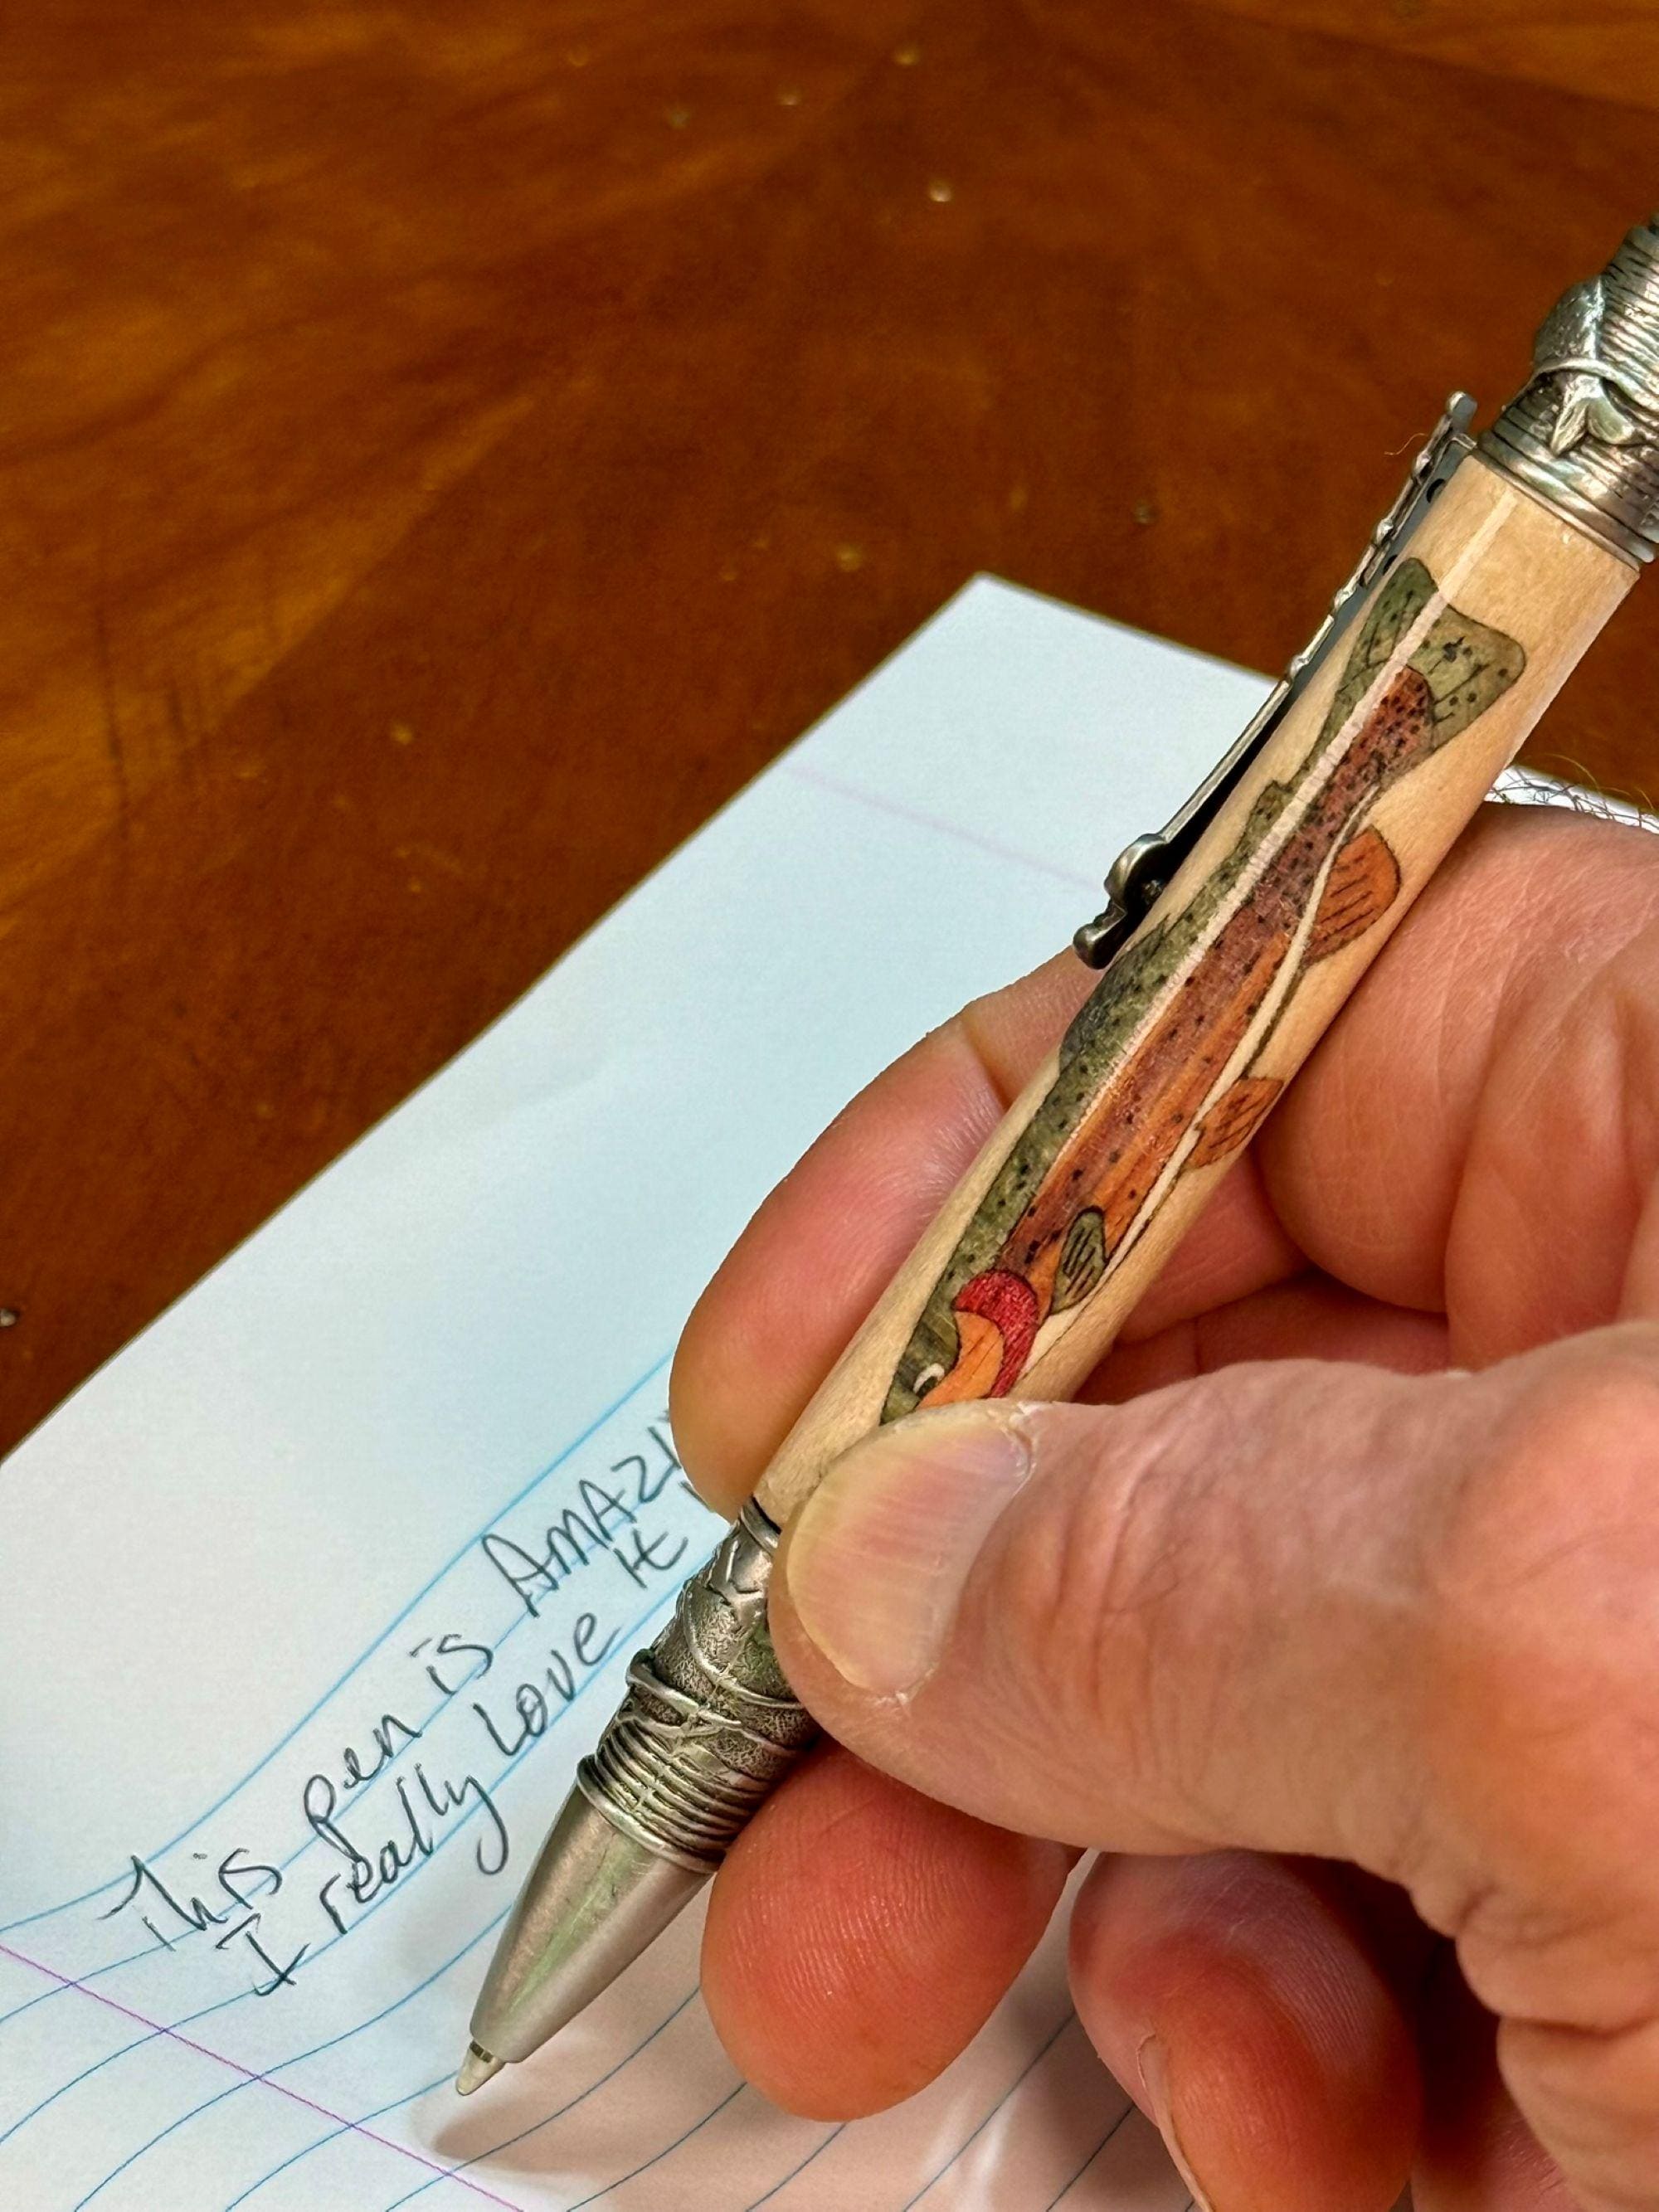 This pen is AMAZI
I really Love It